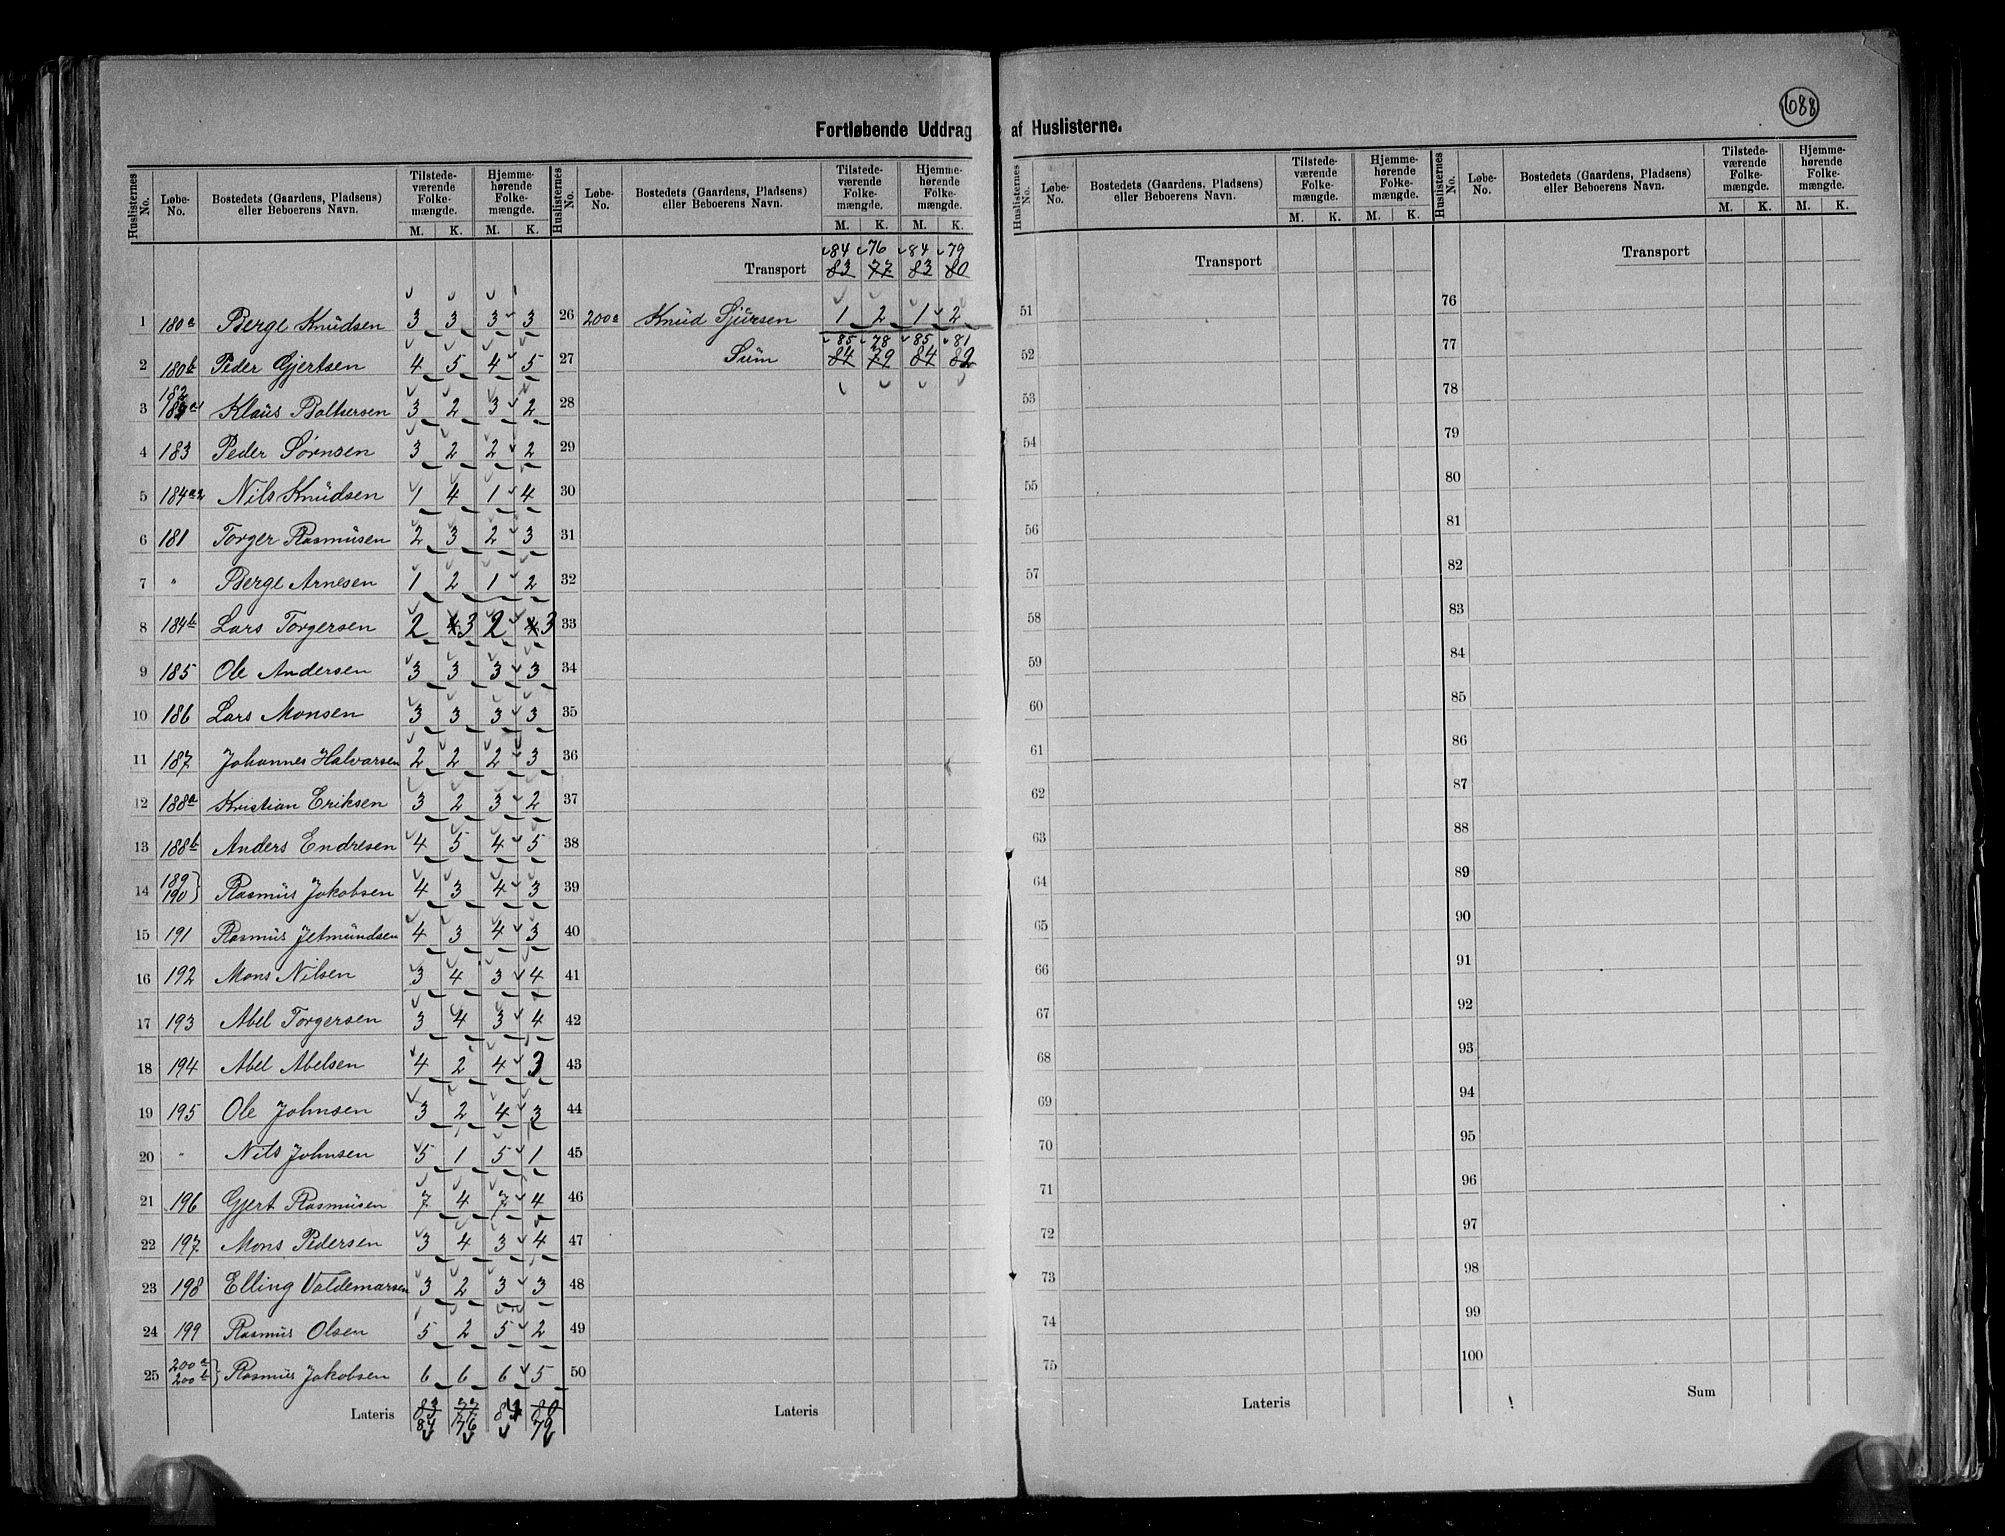 688
Fortløbende Uddrag af Huslisterne.
Huslisternes No. | Løbe-No. | Bostedets (Gaardens, Pladsens) eller Beboerens Navn. | Tilstedeværende Folkemængde. M. K. | Hjemmehørende Folkemængde. M. K.
1 180a Berge Knüdsen 3 3 3 3
2 180b Peder Gjertsen 4 5 4 5
3 182 Klaüs Bolthersen 3 2 3 2
4 183 Peder Sørnsen 3 2 2 2
5 184a2 Nils Knüdsen 1 4 1 4
6 181 Torger Rasmüsen 2 3 2 3
7 " Berge Arnesen 1 2 1 2
8 184b Lars Torgersen 2 3 2 3
9 185 Ole Andersen 3 3 3 3
10 186 Lars Monsen 3 3 3 3
11 187 Johannes Halvorsen 2 2 2 3
12 188a Kristian Eriksen 3 2 3 2
13 188b Anders Endresen 4 5 4 5
14 189 190 } Rasmüs Jakobsen 4 3 4 3
15 191 Rasmüs Jetmündsen 4 3 4 3
16 192 Mons Nilsen 3 4 3 4
17 193 Abel Torgersen 3 4 3 4
18 194 Abel Abelsen 4 2 4 3
19 195 Ole Johnsen 3 2 4 3
20 " Nils Johnsen 5 1 5 1
21 196 Gjert Rasmüsen 7 4 7 4
22 197 Mons Pedersen 3 4 3 4
23 198 Elling Valdemarsen 3 2 3 3
24 199 Rasmüs Olsen 5 2 5 2
25 200a 200b } Rasmüs Jakobsen 6 6 6 5
Lateris 83 77 84 80
84 76 79
Huslisternes No. | Løbe-No. | Bostedets (Gaardens, Pladsens) eller Beboerens Navn. | Tilstedeværende Folkemængde. M. K. | Hjemmehørende Folkemængde. M. K.
84 76 84 79
Transport 83 77 83 80
26 200a Knüd Sjürsen 1 2 1 2
85 78 85 81
27 Süm 84 79 84 82
28
29
30
31
32
33
34
35
36
37
38
39
40
41
42
43
44
45
46
47
48
49
50
Lateris
Huslisternes No. | Løbe-No. | Bostedets (Gaardens, Pladsens) eller Beboerens Navn. | Tilstedeværende Folkemængde. M. K. | Hjemmehørende Folkemængde. M. K.
Transport
51
52
53
54
55
56
57
58
59
60
61
62
63
64
65
66
67
68
69
70
71
72
73
74
75
Lateris
Huslisternes No. | Løbe-No. | Bostedets (Gaardens, Pladsens) eller Beboerens Navn. | Tilstedeværende Folkemængde. M. K. | Hjemmehørende Folkemængde. M. K.
Transport
76
77
78
79
80
81
82
83
84
85
86
87
88
89
90
91
92
93
94
95
96
97
98
99
100
Sum